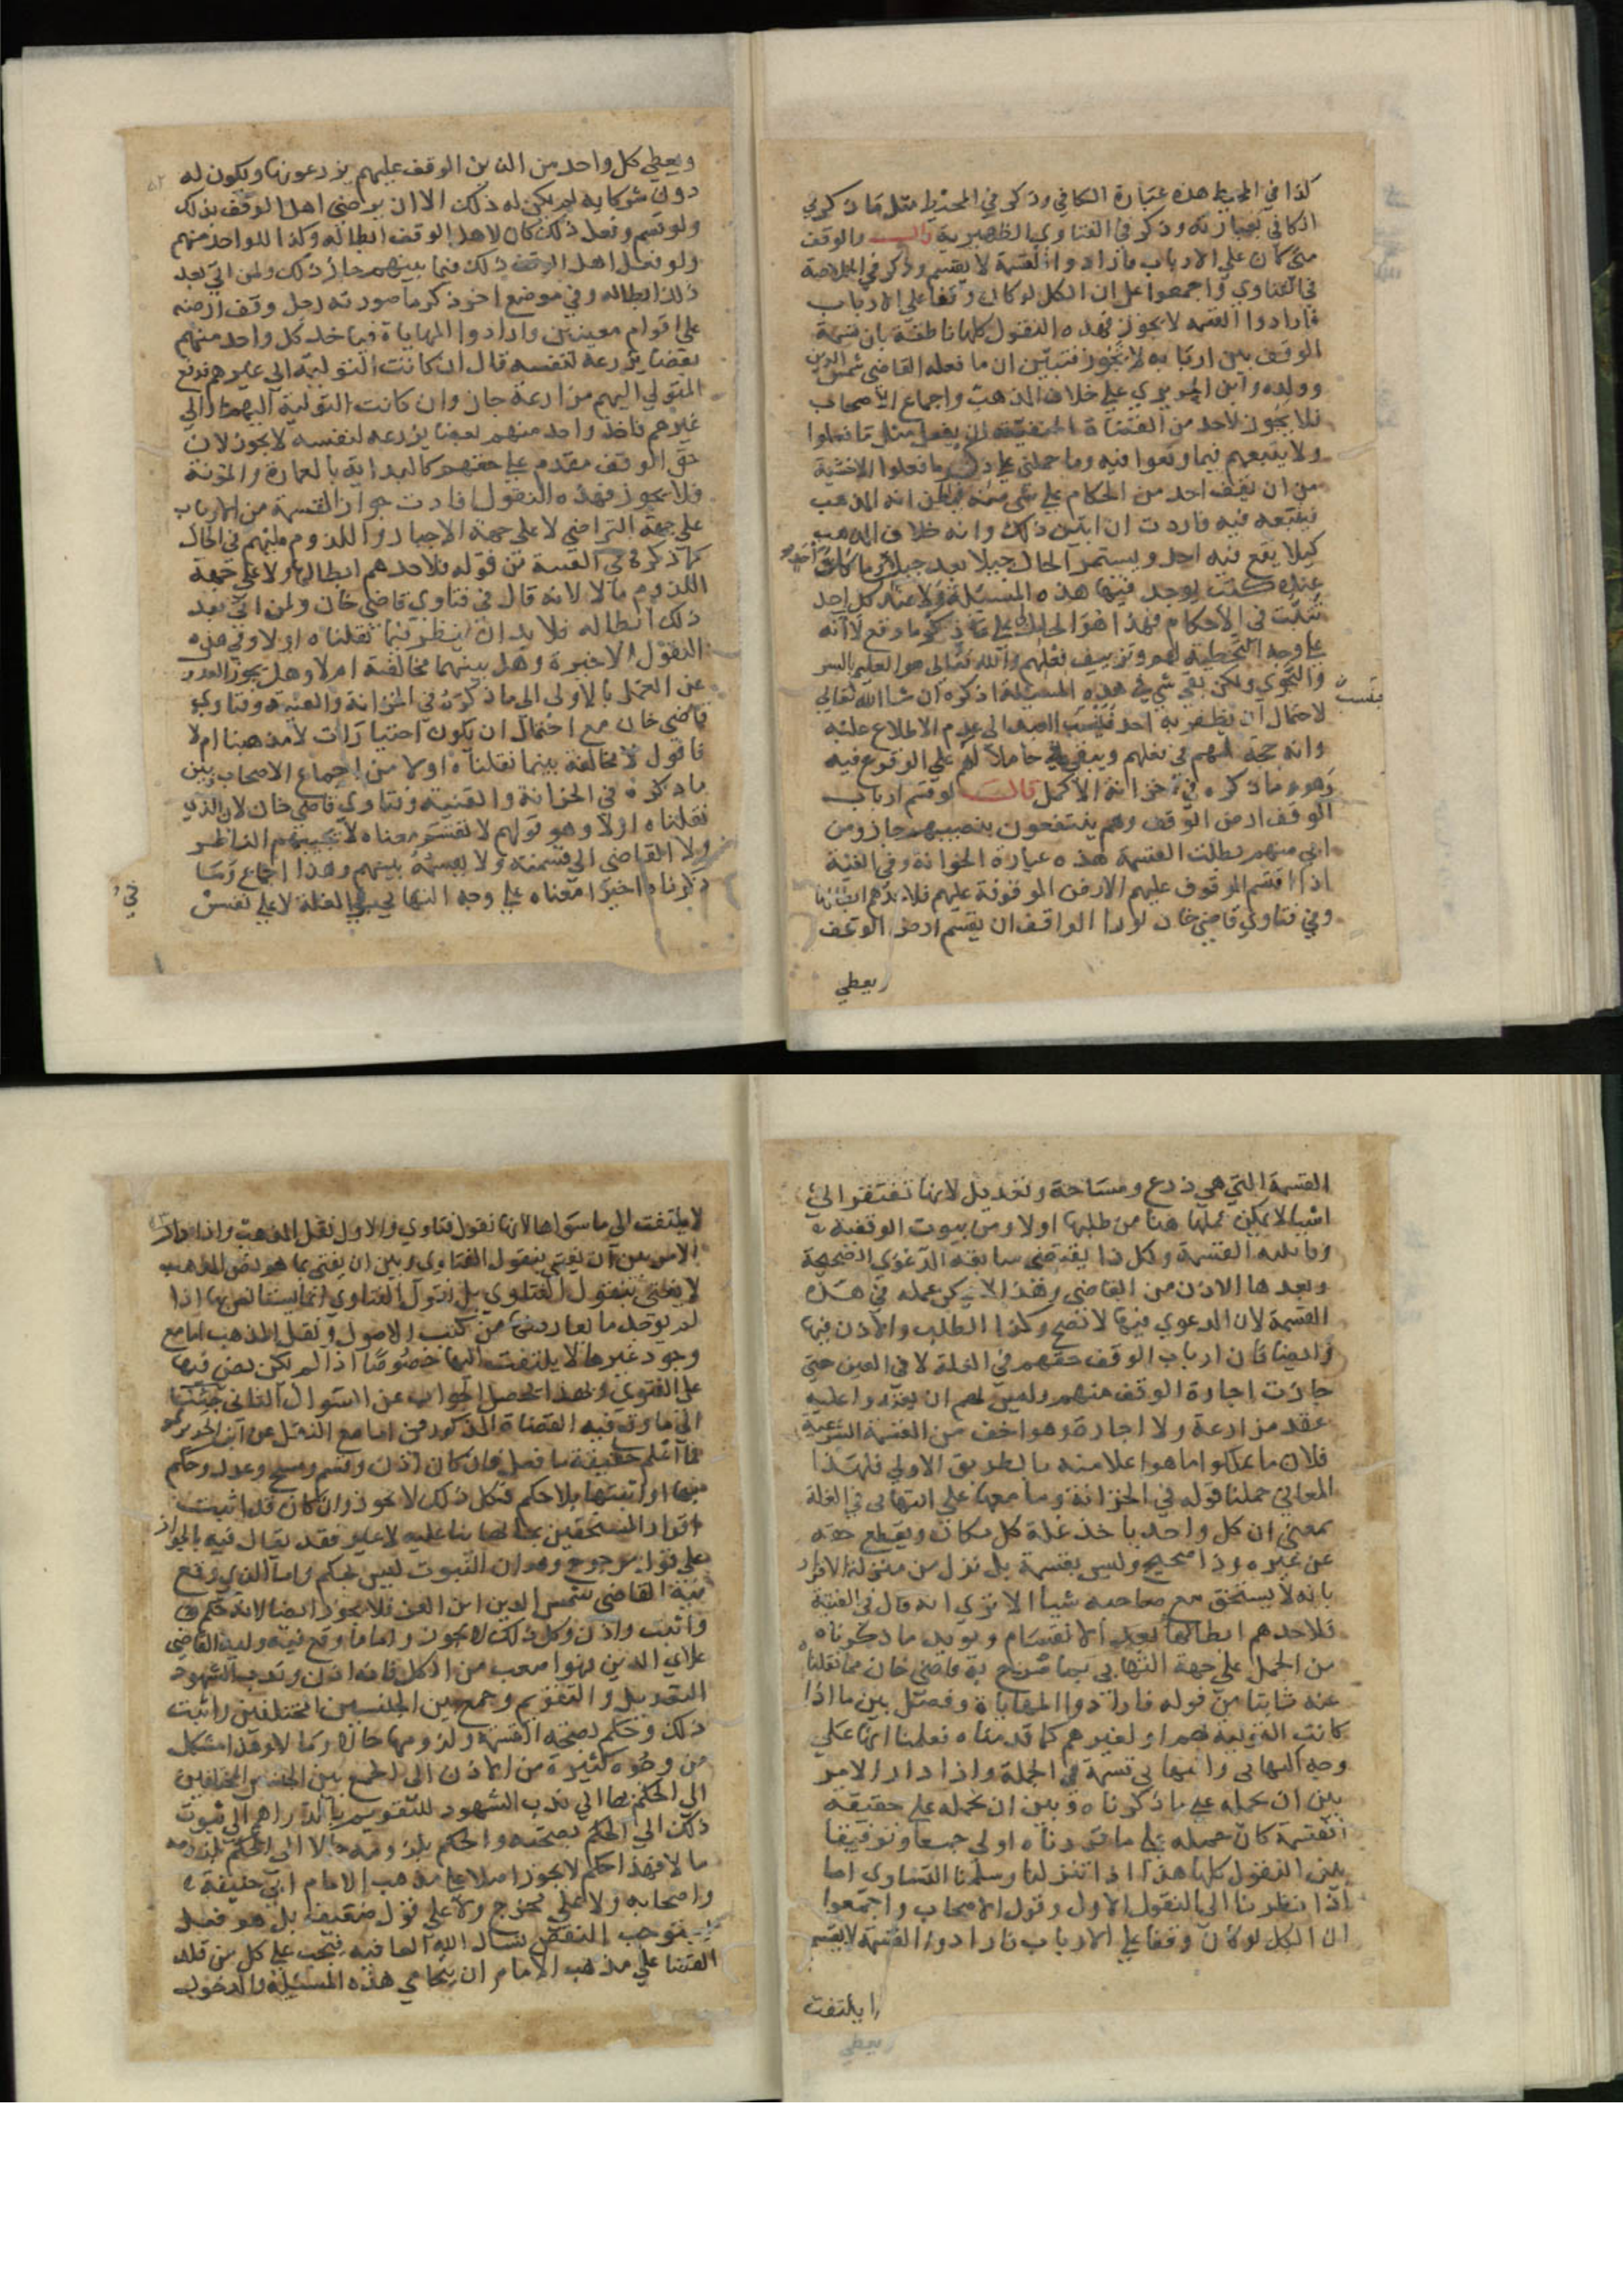 كذا في المحيط هذه عبارة الكافي وذكر في المحيط مثل ما ذكر في
الكافي بعبارته وذكر في الفتاوي الظهيرية قالــــ والوقف
متى كان على الارباب فارادوا القسمة لا يقسم وذكر في الخلاصة
في الفتاوي واجمعوا على ان الكل لو كان وقفا على الارباب
فارادوا القسمة لا يجوز فهذه النقول كلها ناطقة بان قسمة
الوقف بين اربابه لا تجوز فتبين ان ما فعله القاضي شمس الدين
وولده وابن الحريري على خلاف المذهب واجماع الاصحاب
فلا يجوز لاحد من القضاة الحنفية ان يفعل مثل ما فعلوا
ولا يتبعهم فيما وقعوا فيه وما حملني على ذكر ما فعلوا الا خشية
من ان يقف احد من الحكام على شي منه فيظن انه المذهب
فيتبعه فيه فاردت ان ابين ذلك وانه خلاف المذهب
كيلا يقع فيه احد ويستمر الحال جيلا بعد جيل ما كل احد
عنده كتب يوجد فيها هذه المسئلة ولا عند كل احد
تثبت في الاحكام فهذا هو الحامل لي على ذكر ما وقع لا انه
على وجه التخطية لهم وتزييف فعلهم والله تعالى هو العليم بالسر
والنجوي ولكن بقي شي في هذه المسئلة اذكره ان شا الله تعالى
فينسب
لاحتمال ان يظفر به احد فينسب الي عدم الاطلاع عليه
وانه حجة لهم في فعلهم ويبقى حاملا لهم على الوقوع فيه
وهو ما ذكره في خزانة الاكمل قالــــ لو قسم ارباب
الوقف ارض الوقف وهم ينتفعون بنصيبهم جاز ومن
ابى منهم بطلت القسمة هذه عبارة الخزانة وفي القنية
اذا اقتسم الموقوف عليهم الارض الموقوفة عليهم فلاحدهم ابطالها
وفي فتاوي قاضي خان لو اراد الواقف ان يقسم ارض الوقف
ويعطي
ويعطي كل واحد من الذين الوقف عليهم يزدرعونها ويكون له
دون شركايه لم يكن له ذلك الا ان يراضي اهل الوقف بذلك
ولو قسم وفعل ذلك كان لاهل الوقف ابطاله وكذا للواحد منهم
ولو فعل اهل الوقف ذلك فيما بينهم جاز ذلك ولمن ابى بعد
ذلك ابطاله وفي موضع اخر ذكر ما صورته رجل وقف ارضه
على اقوام معينين وارادوا المهاياة فياخذ كل واحد منهم
بعضا يزرعه لنفسه قال ان كانت التولية الى غيرهم فدفع
المتولي اليهم مزارعة جاز وان كانت التولية اليهم او الي
غيرهم فاخذ واحد منهم بعضا يزرعه لنفسه لا يجوز لان
حق الوقف مقدم على حقهم كالبداية بالعمارة والمؤنة
فلا يجوز فهذه النقول افادت جواز القسمة من الارباب
على جهة التراضي لا على جهة الاجبار واللزوم عليهم في الحال
كما ذكره في القنية من قوله فلاحدهم ابطالها ولا على جهة
اللزوم مالا لانه قال في فتاوي قاضي خان ولمن ابى بعد
ذلك ابطاله فلا بد ان ينظر فيما نقلناه اولا وفي هذه
النقول الاخيرة وهل بينهما مخالفة ام لا وهل يجوز العدول
عن العمل بالاولى الى ما ذكره في الخزانة والقنية وفتاوي
قاضي خان مع احتمال ان يكون اختيارات لا مذهبنا ام لا
فاقول لا مخالفة بينما نقلناه اولا من اجماع الاصحاب وبين
ما ذكره في الخزانة والقنية وفتاوي قاضي خان لان الذي
نقلناه اولا وهو قولهم لا تقسم معناه لا يجيبهم الناظر
ولا القاضي الى قسمته ولا يقسمه بينهم وهذا اجماع وما
ذكرناه اخيرا معناه على وجه التهايي في الغلة لا على نفس
القسمة التي هي ذرع ومساحة وتعديل لانها تفتقر الى
اشيا لا يمكن عملها هنا من طلبها اولا ومن ثبوت الوقفية
وقابليه القسمة وكل ذا يقتضي سابقه الدعوي الصحيحة
وبعدها الاذن من القاضي وهذا لا يمكن عمله في هذه
القسمة لان الدعوي فيها لا تصح وكذا الطلب والاذن فيها
وايضا فان ارباب الوقف حقهم في الغلة لا في العين حتى
جازت اجارة الوقف منهم وليس لهم ان يعقدوا عليه
عقد مزارعة ولا اجارة وهو اخف من القسمة الشرعية
فلان ما يملكوا ما هو اعلا منه بالطريق الاولي فلهذا
المعاني حملنا قوله في الخزانة وما معها على التهايي في الغلة
بمعنى ان كل واحد ياخذ غلة كل مكان ويقطع حقه
عن غيره وذا صحيح وليس بقسمة بل نزل من منزلة الاقرار
بانه لا يستحق مع صاحبه شيا الا ترى انه قال في القنية
فلاحدهم ابطالها بعد الاقتسام ويويد ما ذكرناه
من الحمل على جهة التهايي بما صرح به قاضي خان مما نقلنا
عنه ثانيا من قوله فارادوا المهاياة وفصل بين ما اذا
كانت التولية لهم او لغيرهم كما قدمناه فعلمنا انها على
وجه التهايي والتهايي قسمة في الجملة واذا دار الامر
بين ان نحمله على ما ذكرناه وبين ان نحمله على حقيقة
القسمة كان حمله على ما قررناه اولى جمعا وتوفيقا
بين النقول كلها هذا اذا تنزلنا وسلمنا التساوي اما
اذا نظرنا الى النقول الاول وقول الاصحاب واجمعوا
ان الكل لو كان وقفا على الارباب فارادوا القسمة لا يقسم
لا يلتفت
لا يلتفت الي ما سواها لانها نقول فتاوي والاول نقل المذهب واذا دار
الامر بين ان يفتي بنقول الفتاوي وبين ان يفتي بما هو نص المذهب
لا يفتي بنقول الفتاوي بل نقول الفتاوي انما يستانس بها اذا
لم يوجد ما يعارضها من كتب الاصول ونقل المذهب اما مع
وجود غيرها لا يلتفت اليها خصوصا اذا لم يكن نص فيها
على الفتوى وبهذا تحصل الجواب عن السوال الثاني جئنا
الى ما وقع فيه القضاة المذكورون اما مع النقل عن ابن الحريري
فما اعلم حقيقة ما فعل فان كان اذن وقسم ومسح وعدل وحكم
بها او اثبتها بلا حكم فكل ذلك لا يجوز وان كان قد اثبت
اقرار المستحقين بحالها بنا عليه لا غير فقد يقال فيه بالجواز
على قول مرجوح وهو ان الثبوت ليس بحكم واما الذي وقع
فيه القاضي شمس الدين ابن العز فلا يجوز ايضا لانه حكم
واثبت واذن وكل ذلك لا يجوز واما ما وقع فيه ولده القاضي
علاي الدين فهو اصعب من الكل فانه اذن وندب الشهود
التعديل والتقويم وجمع بين الجنسين المختلفين واثبت
ذلك وحكم بصحة القسمة ولزومها حالا ومالا وهذا مشكل
من وجوه كثيرة من الاذن الى الجمع بين الجنسين المختلفين
الى الحكم بها الي ندب الشهود للتقويم بالدراهم الى ثبوت
ذلك الي الحكم بصحته والحكم بلزومه حالا الى الحكم بلزومه
مالا فهذا حكم لا يجوز اصلا على مذهب الامام ابي حنيفة
واصحابه ولا على تخرج ولا على قول ضعيف بل هو فعل
يتوجب النقض نسال الله العافية فيجب على كل من قلد
القضا على مذهب الامام ان يتحامي هذه المسئلة والدخول